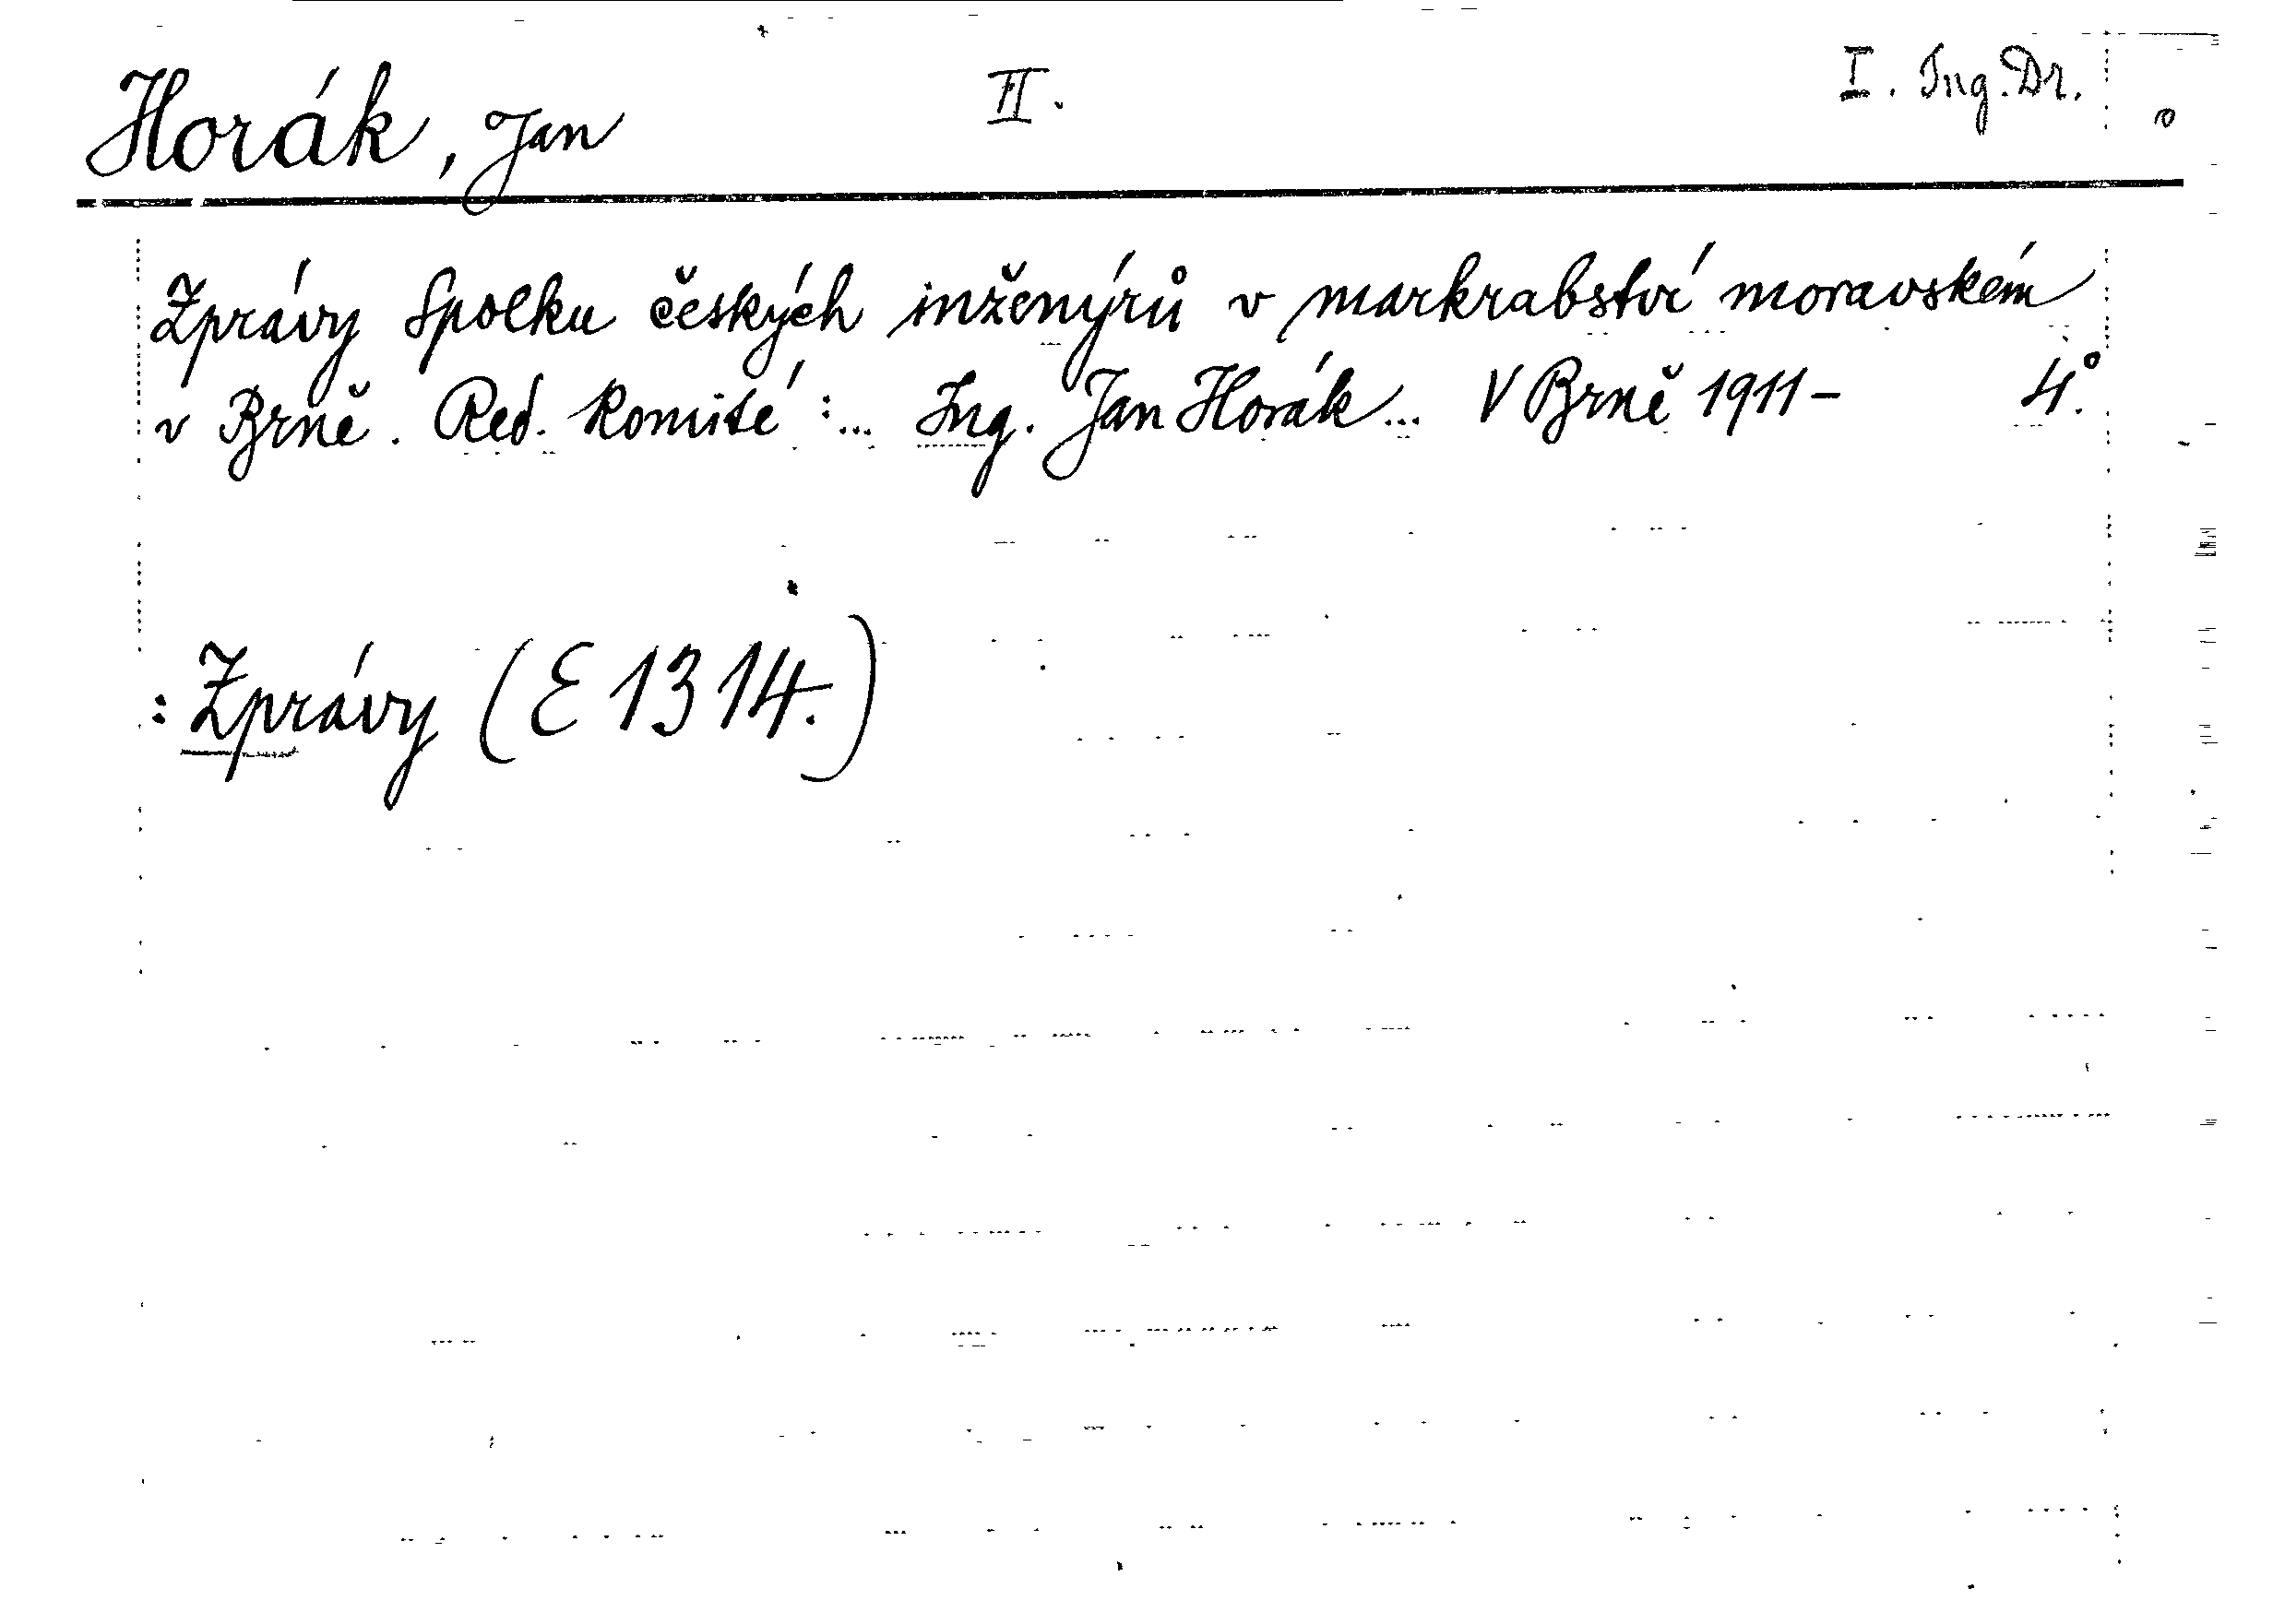 Horák, Jan II. I. Ing. Dr.
Zprávy Spolku českých inženýrů v markrabství moravském
v Brně. Red. komité: ... Ing. Jan Horák ... V Brně 1911- 4°.
: Zprávy (E 1314.)